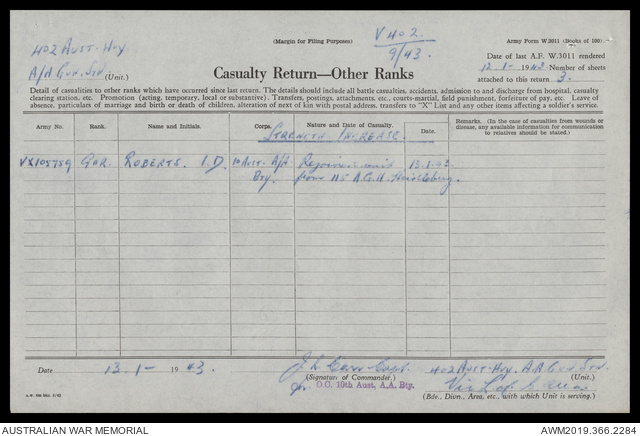 402 Aust. Hvy.
A/A Gun. Stn. (Unit.)
(Margin for Filing Purposes)
V 402
9/43.
Army Form W.3011 (Books of 100).
Date of last A.F. W.3011 rendered
12-1- 1943 Number of sheets
attached to this return 3.
Casualty Return—Other Ranks
Detail of casualties to other ranks which have occurred since last return. The details should include all battle casualties, accidents, admission to and discharge from hospital, casualty
clearing station, etc. Promotion (acting, temporary, local or substantive). Transfers, postings, attachments, etc., courts-martial, field punishment, forfeiture of pay, etc. Leave of
absence, particulars of marriage and birth or death of children, alteration of next of kin with postal address, transfers to "X" List and any other items affecting a soldier's service.
Army No.
Rank.
Name and Initials.
Corps.
Nature and Date of Casualty.
Date.
Remarks. (In the case of casualties from wounds or
disease, any available information for communication
to relatives should be stated.)
Strength Increase
VX105989 Gnr. ROBERTS. I.D. 10 Aust. A/A Rejoined unit 13.1.43
Bty. from 115 A.G.H. Heidelberg.
Date 13-1- 1943.
(Signature of Commander.)
O.C. 10th Aust. A.A. Bty.
402 Aust. Hvy. A.A. Gun Stn.
(Unit.)
Vic L of C Area
(Bde., Dion., Area, etc., with which Unit is serving.)
AUSTRALIAN WAR MEMORIAL
AWM2019.366.2284